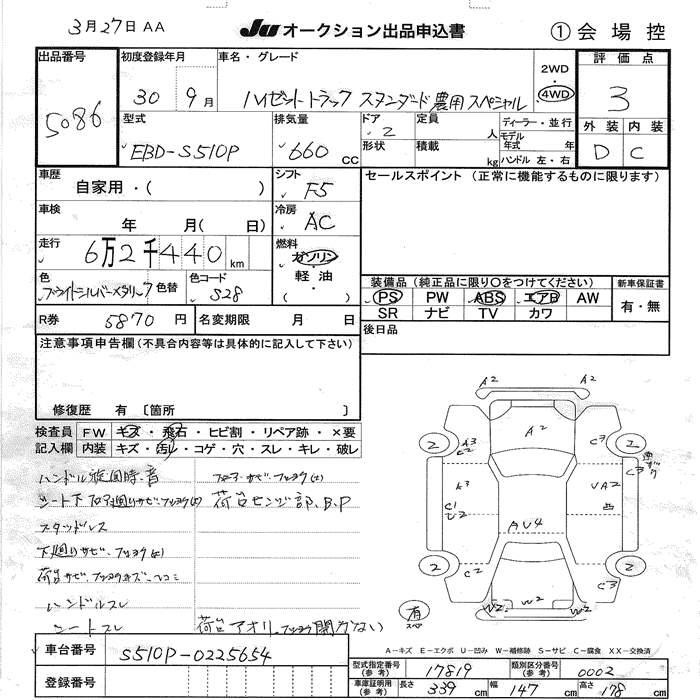 3月27日 AA
JU オークション出品申込書 ① 会場控
出品番号 初度登録年月 車名・グレード 2WD 4WD 評価点
5086 30 9月 ハイゼットトラック スタンダード 農用スペシャル 3
型式 排気量 ドア 定員 ディーラー・並行 外装 内装
EBD-S510P 660 CC 2 人 モデル年式 年 D C
形状 積載 kg ハンドル 左・右
車歴 自家用・( ) シフト F5 セールスポイント (正常に機能するものに限ります)
車検 年 月( 日) 冷房 AC
走行 6万2千440 km 燃料 ガソリン
軽油
( )
色 ブライトシルバーメタリック 色替 色コード S28
装備品 (純正品に限り○をつけてください) 新車保証書
PS PW ABS エアB AW 有・無
SR ナビ TV カワ
R券 5870 円 名変期限 月 日 後日品
注意事項申告欄 (不具合内容等は具体的に記入して下さい)
修復歴 有 〔箇所 〕
検査員 FW キズ・飛石・ヒビ割・リペア跡・×要
記入欄 内装 キズ・汚レ・コゲ・穴・スレ・キレ・破レ
ハンドル旋回時、音 フロア・サビ・フショク(大)
シート下フロア廻りサビ・フショク 荷台センジ部、B.P
スタッドレス
下廻りサビ、フショク
荷台サビ、フショクキズ・ヘコミ
ハンドルスレ
シートスレ 荷台アオリ、フショク開カない
A2 A2
2 A3 C2 A2 C3 2
A3 UA2 C3
C1 U2 AU4 凸
2 C2 C3 2
W2 W2 W2
有 スペア
A－キズ E－エクボ U－凹み W－補修跡 S－サビ C－腐食 XX－交換済
車台番号 S510P-0225654
登録番号
型式指定番号 (参考) 17819 類別区分番号 (参考) 0002
車庫証明用 (参考) 長さ 339 cm 幅 147 cm 高さ 178 cm